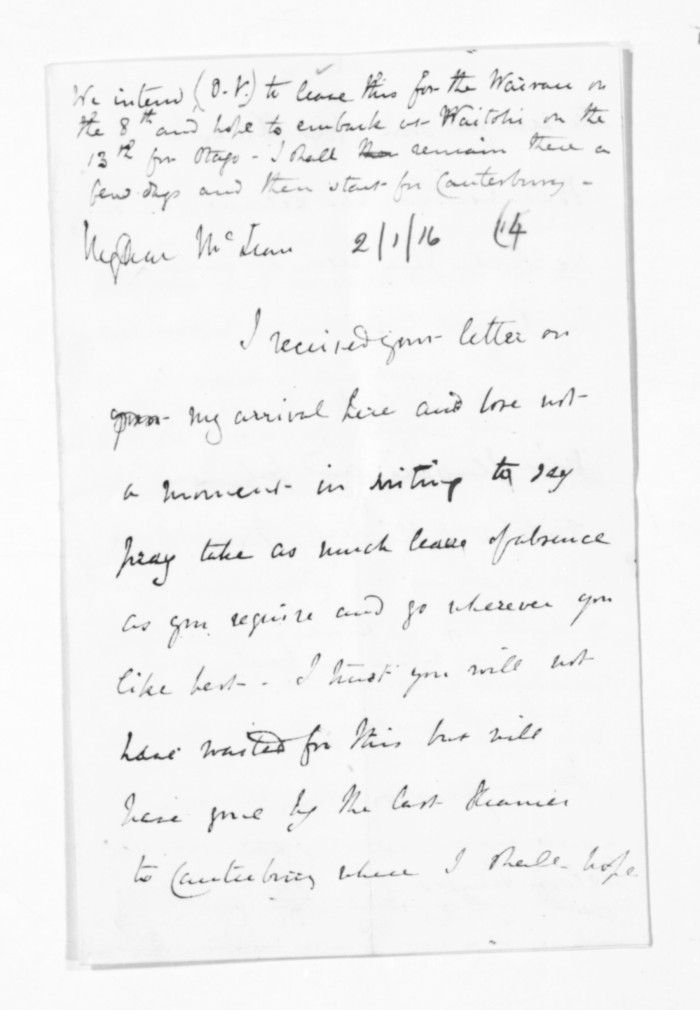 We intend (D.V.) to leave this for the Wairau on
the 8th and hope to embark at Waitohi on the
13th for Otago - I shall remain there a
few days and then start for Canterbury -
My dear McLean 2/1/16 (14
I received your letter on
my arrival here and lose not
a moment in writing to say
pray take as much leave of absence
as you require and go wherever you
like best - I trust you will not
have waited for this but will
have gone by the last Steamer
to Canterbury where I shall hope